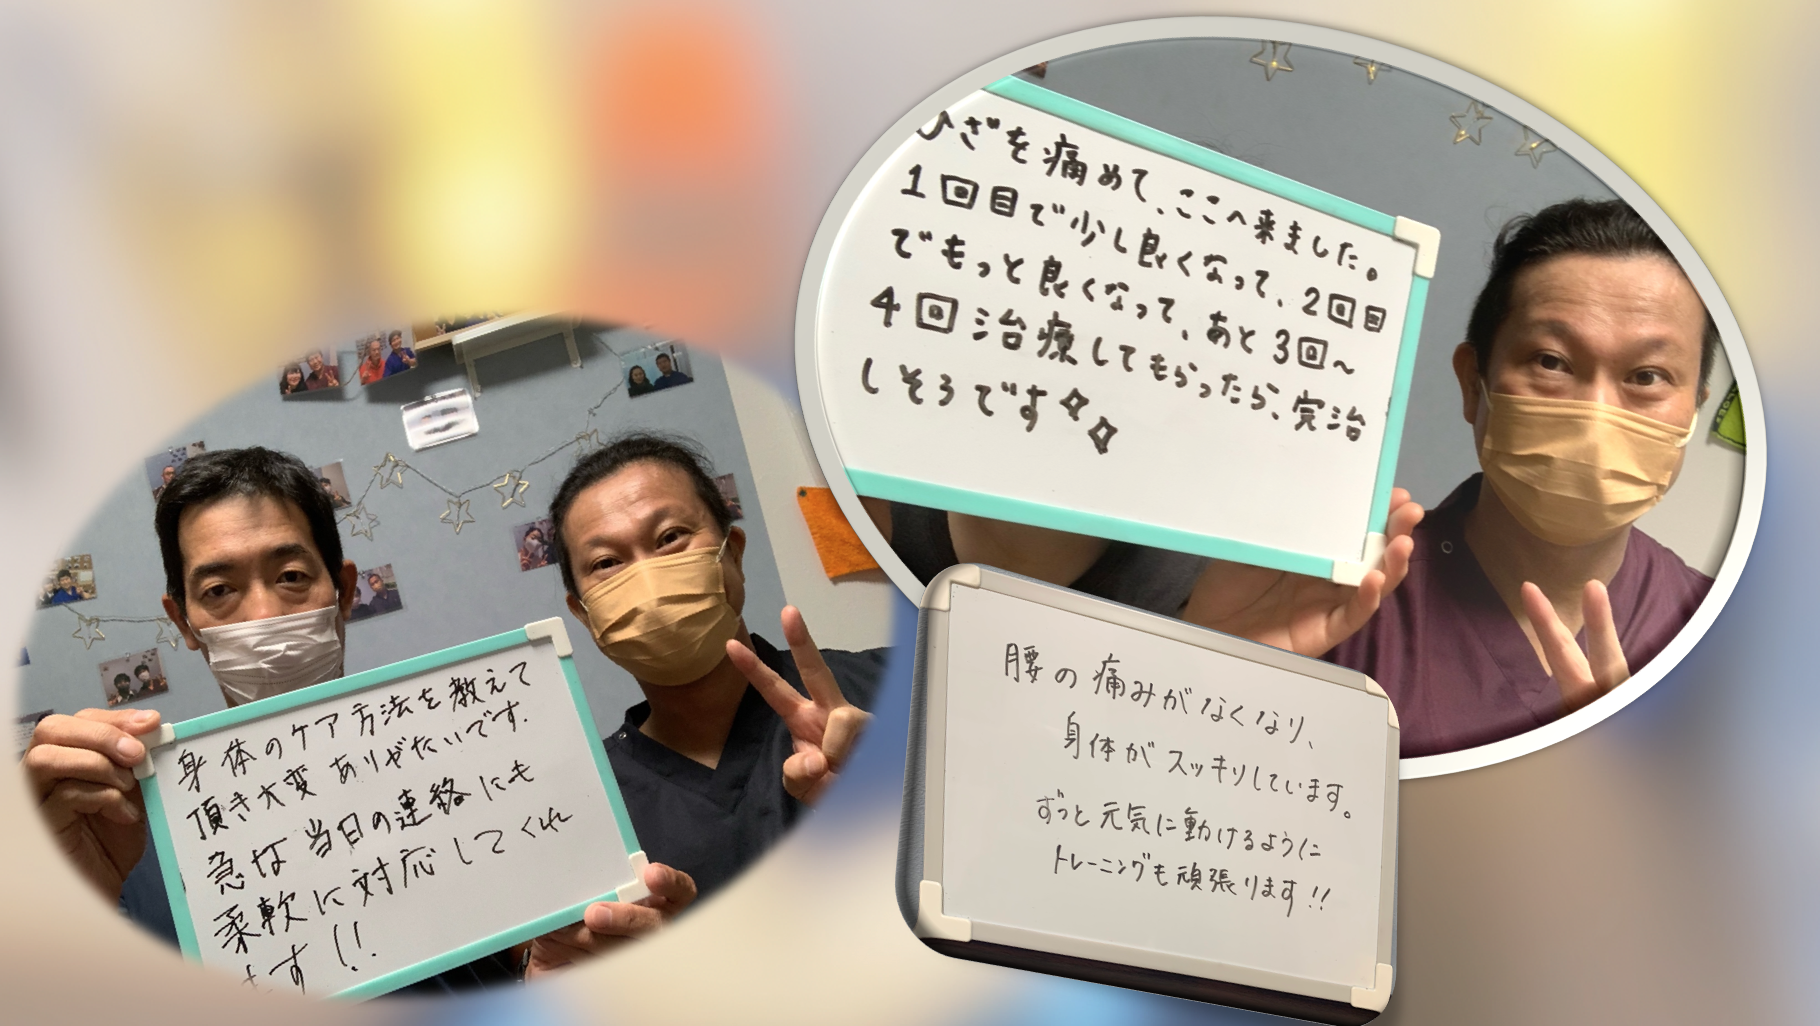 ひざを痛めて、ここへ来ました。
1回目で少し良くなって、2回目
でもっと良くなって、あと3回〜
4回治療してもらったら、完治
しそうです
身体のケア方法を教えて
頂き大変ありがたいです.
急な当日の連絡にも
柔軟に対応してくれ
ます!!
腰の痛みがなくなり、
身体がスッキリしています。
ずっと元気に動けるように
トレーニングも頑張ります!!